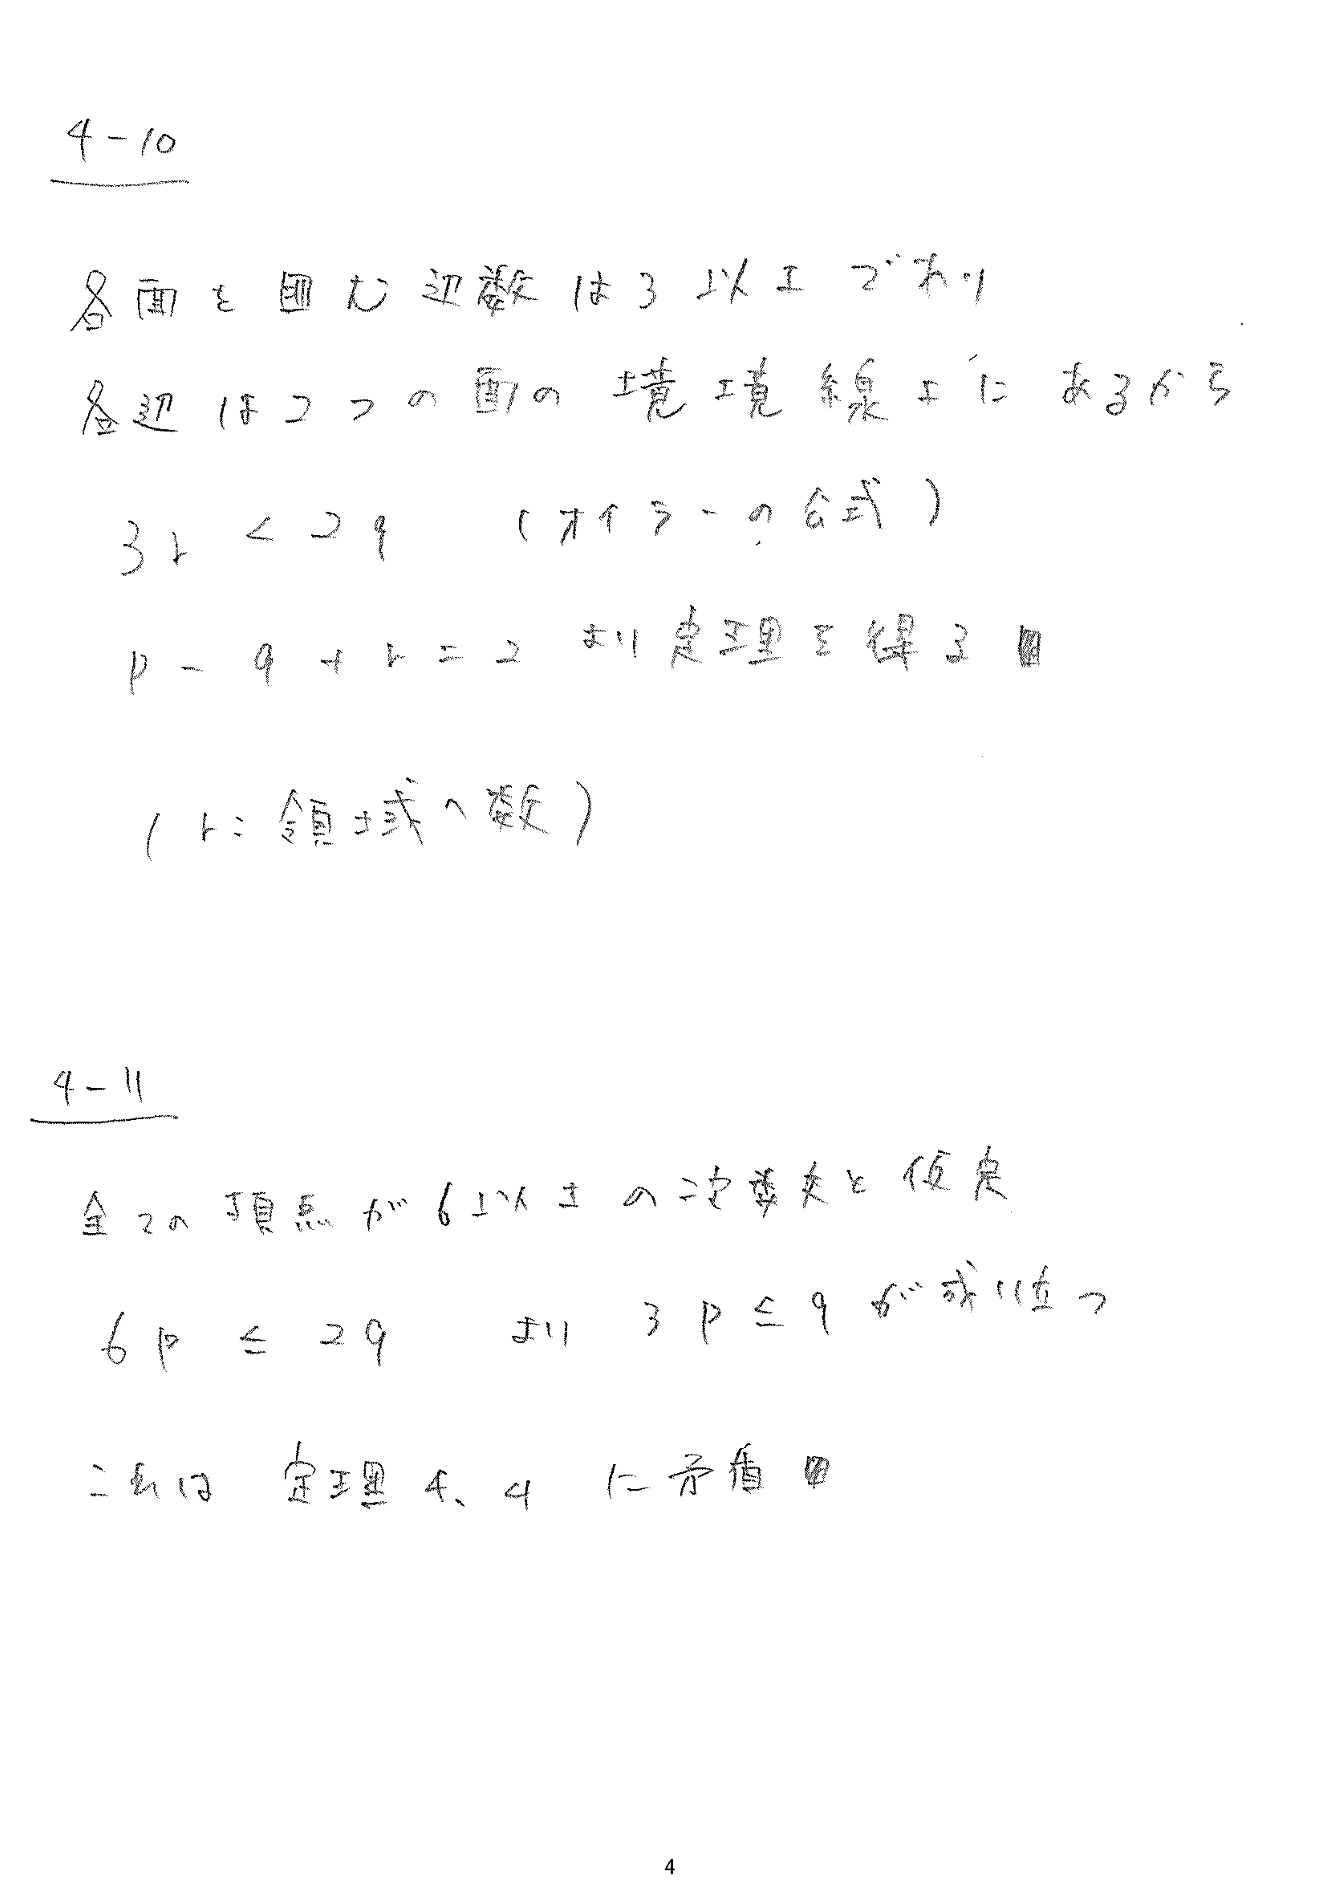 4-10
各面を囲む辺数は3以上であり
各辺は2つの面の境境線上にあるから
3r < 2q (オイラーの公式)
p - q + r = 2 より定理を得る
(r: 領域の数)
4-11
全ての頂点が6以上の次数と仮定
6p ≤ 2q より 3p ≤ q が成り立つ
これは 定理4.4 に矛盾
4